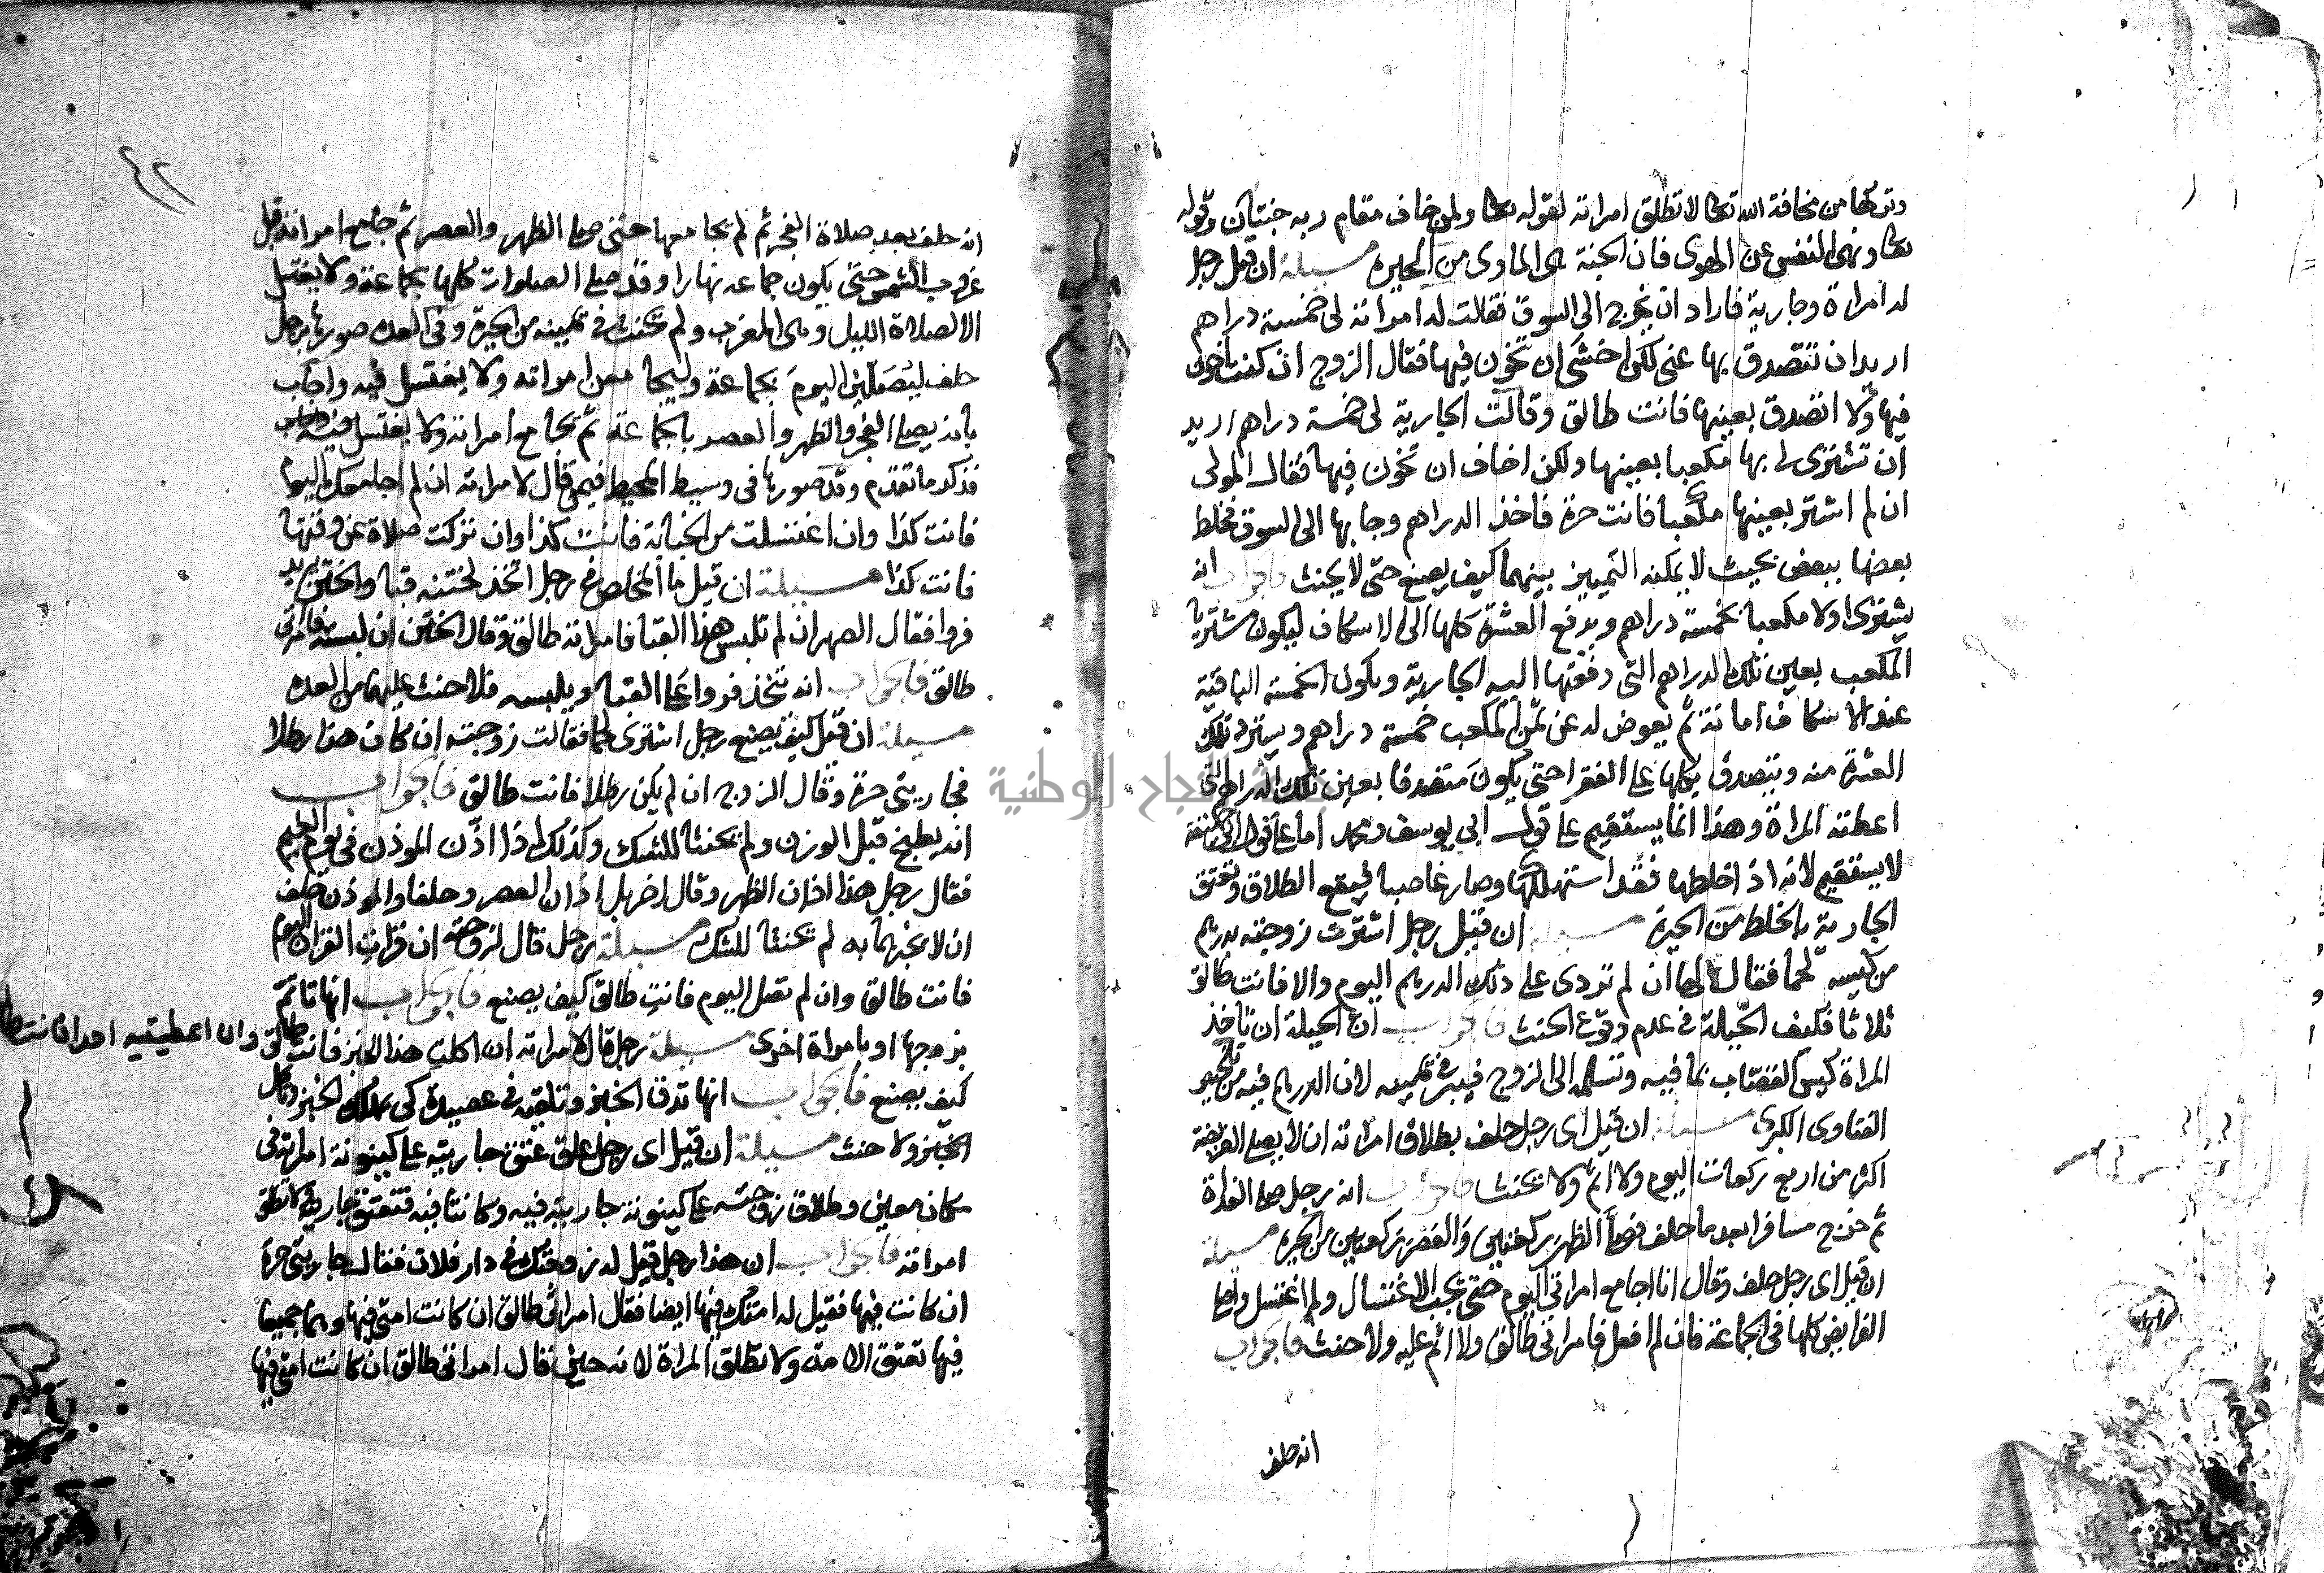 وتركها من مخافة الله تعالى لا تطلق امراته لقوله تعالى ولمن خاف مقام ربه جنتان وقوله
تعالى ونهى النفس عن الهوى فان الجنة هى الماوى من الحيرة مسيلة ان قيل رجل
له امراة وجارية فاراد ان يخرج الى السوق فقالت له امراته لى خمسة دراهم
اريد ان تتصدق بها عنى لكن اخشى ان تخون فيها فقال الزوج ان كنت اخون
فيها ولا اتصدق بعينها فانت طالق وقالت الجارية لى خمسة دراهم اريد
ان تشترى لى بها مكعبا بعينها ولكن اخاف ان تخون فيها فقال المولى
ان لم اشتر بعينها مكعبا فانت حرة فاخذ الدراهم وجا بها الى السوق فخلط
بعضها ببعض بحيث لا يمكنه التمييز بينهما كيف يصنع حتى لا يحنث فالجواب انه
يشترى اولا مكعبا بخمسة دراهم ويدفع العشرة كلها الى الاسكاف ليكون مشتريا
المكعب بعين تلك الدراهم التى دفعتها اليه الجارية ويكون الخمسة الباقية
عند الاسكاف امانة ثم يعوض له عن ثمن المكعب خمسة دراهم ويسترد تلك
العشرة منه ويتصدق بكلها على الفقرا حتى يكون متصدقا بعين تلك الدراهم التى
اعطته المراة وهذا انما يستقيم على قول ابى يوسف ومحمد اما على قول ابى حنيفة
لا يستقيم لانه اذا خلطها فقد استهلكها وصار غاصبا فيقع الطلاق وتعتق
الجارية بالخلط من الحيرة مسيلة ان قيل رجل اشترت زوجته بدرهم
من كيسه لحما فقال لها ان لم تردى على ذلك الدرهم اليوم والا فانت طالق
ثلاثا فكيف الحيلة فى عدم وقوع الحنث فالجواب ان الحيلة ان تاخذ
المراة كيس القصاب بما فيه وتسلمه الى الزوج فيبر فى يمينه لان الدرهم فيه من تلخيص
الفتاوى الكبرى مسيلة ان قيل اى رجل حلف بطلاق امراته ان لا يصلى الفريضة
اكثر من اربع ركعات اليوم ولا اثم ولا يحنث فالجواب انه رجل صلى الغداة
ثم خرج مسافرا بعد ما حلف فصلى الظهر ركعتين والعصر ركعتين من الحيرة مسيلة
ان قيل اى رجل حلف وقال انا اجامع امراتى اليوم حتى يجب الاغتسال ولم اغتسل واصلى
الفرايض كلها فى الجماعة فان لم افعل فامراتى طالق ولا اثم عليه ولا حنث فالجواب
انه حلف
انه حلف بعد صلاة الفجر ثم لم يجامعها حتى صلى الظهر والعصر ثم جامع امراته قبل
غروب الشمس حتى يكون جماعه نهارا وقد صلى الصلوات كلها بجماعة ولا يغتسل
الا لصلاة الليل وهى المغرب ولم يحنث فى يمينه من الحيرة وفى العدة صورها برجل
حلف ليصلين اليوم بجماعة وليجامعن امراته ولا يغتسل فيه واجاب
بانه يصلى الفجر والظهر والعصر بالجماعة ثم يجامع امراته ولا يغتسل فيه
فذكر ما تقدم وقد صورها فى وسيط المحيط فيمن قال لامراته ان لم اجامعك اليوم
فانت كذا وان اغتسلت من الجنابة فانت كذا وان تركت صلاة عن وقتها
فانت كذا مسيلة ان قيل ما المخلص فى رجل اتخذ لختنه قبا والختن يريد
فروا فقال الصهر ان لم تلبس هذا القبا فامراته طالق وقال الختن ان لبسته فامراتى
طالق فالجواب انه يتخذ فروا على القبا ويلبسه فلا حنث عليهما من العدة
مسيلة ان قيل كيف يصنع رجل اشترى لحما فقالت زوجته ان كان هذا رطلا
فجاريتى حرة وقال الزوج ان لم يكن رطلا فانت طالق فالجواب
انه يطبخ قبل الوزن ولم يحنثا للشك وكذلك اذا اذن الموذن فى يوم الغيم
فقال رجل هذا اذان الظهر وقال اخر بل اذان العصر وحلفا والموذن حلف
ان لا يخبرهما به لم يحنثا للشك مسيلة رجل قال لزوجته ان قرات القران اليوم
فانت طالق وان لم تصل اليوم فانت طالق كيف يصنع فالجواب انها تاتم
بزوجها او بامراة اخرى مسيلة رجل قال لامراته ان اكلت هذا الخبز فانت طالق
وان اعطيتيه احدا فانت طالق
كيف يصنع فالجواب انها تدق الخبز وتلقيه فى عصيدة كى يهلك الخبز وتاكل
الخبز ولا حنث مسيلة ان قيل اى رجل علق عتق جاريته على كينونة امراته فى
مكان معين وطلاق زوجته على كينونة جاريته فيه وكانتا فيه فتعتق جاريته ولا تطلق
امراته فالجواب ان هذا رجل قيل له زوجتك فى دار فلان فقال جاريتى حرة
ان كانت فيها فقيل له امتك فيها ايضا فقال امراتى طالق ان كانت امتى فيها وهما جميعا
فيها تعتق الامة ولا تطلق المراة لانه حين قال امراتى طالق ان كانت امتى فيها